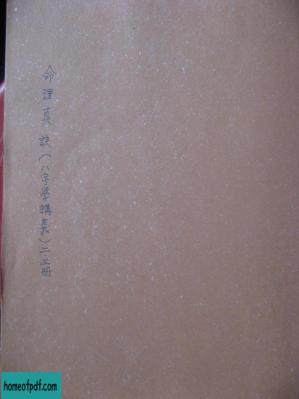 命理真訣（八字學講義）二.五冊
homeofpdf.com